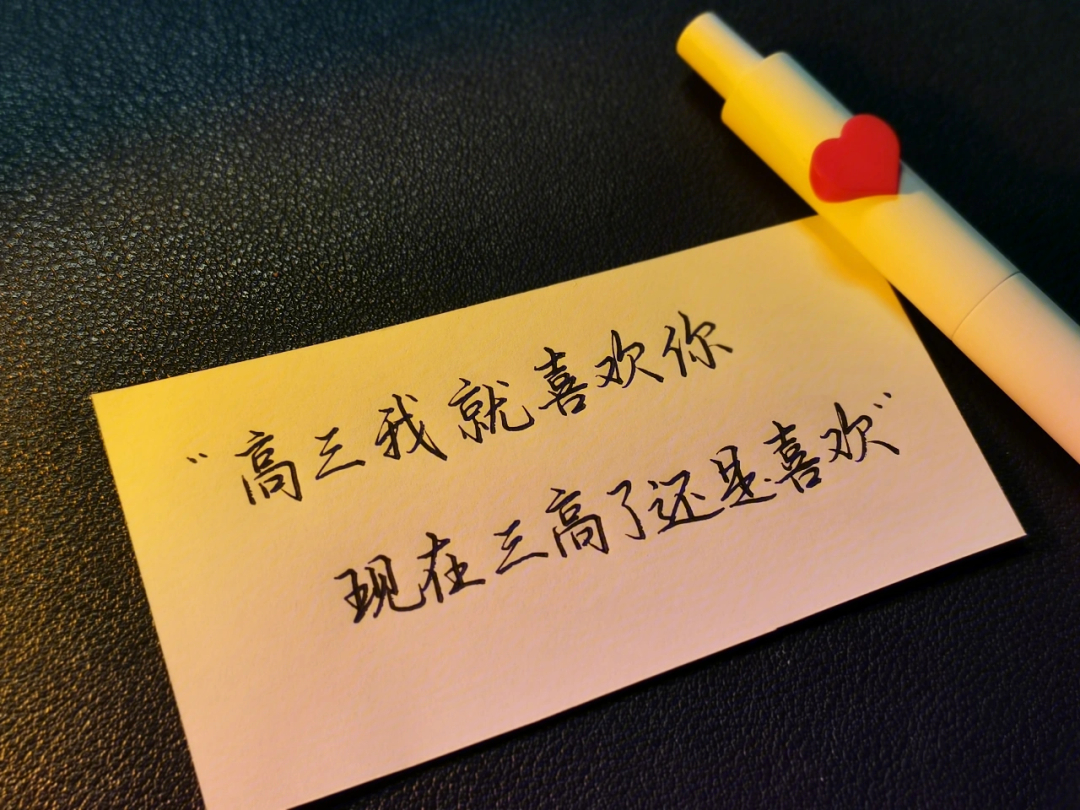 “高三我就喜欢你
现在三高了还是喜欢”